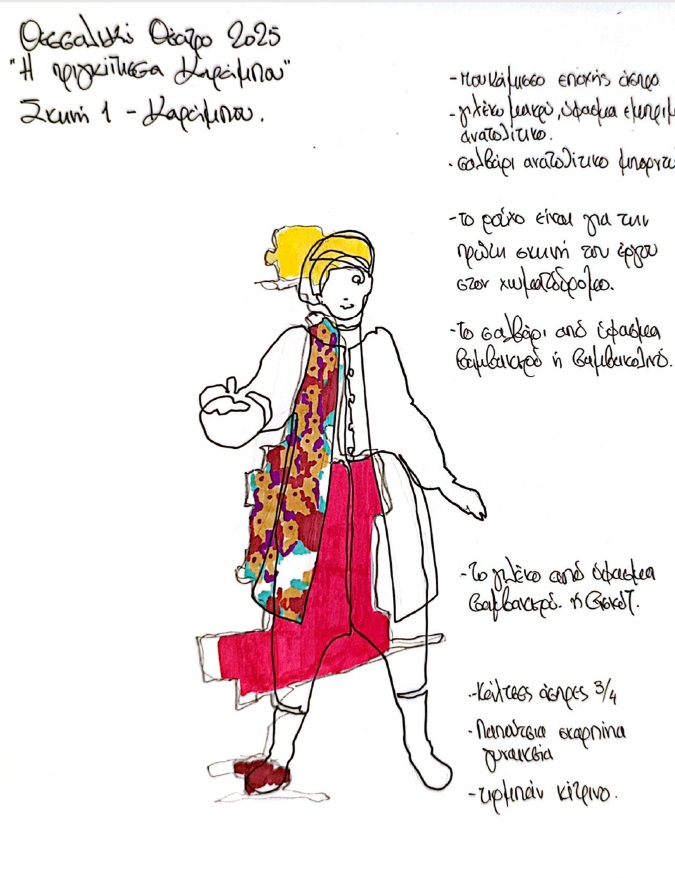 Θεσσαλικό Θέατρο 2025
"Η πριγκίπισσα Καράμπου"
Σκηνή 1 - Καράμπου.
- Πουκάμισο εποχής άσπρο
- γιλέκο μακρύ, ύφασμα εμπριμέ
ανατολίτικο.
- σαλβάρι ανατολίτικο μπορντώ
- το ρούχο είναι για την
πρώτη σκηνή του έργου
στον χωματόδρομο.
- το σαλβάρι από ύφασμα
βαμβακερό ή βαμβακολινό.
- το γιλέκο από ύφασμα
βαμβακερό ή
- Κάλτσες άσπρες 3/4
- Παπούτσια σκαρπίνια
γυναικεία
- τιρμπάν κίτρινο.